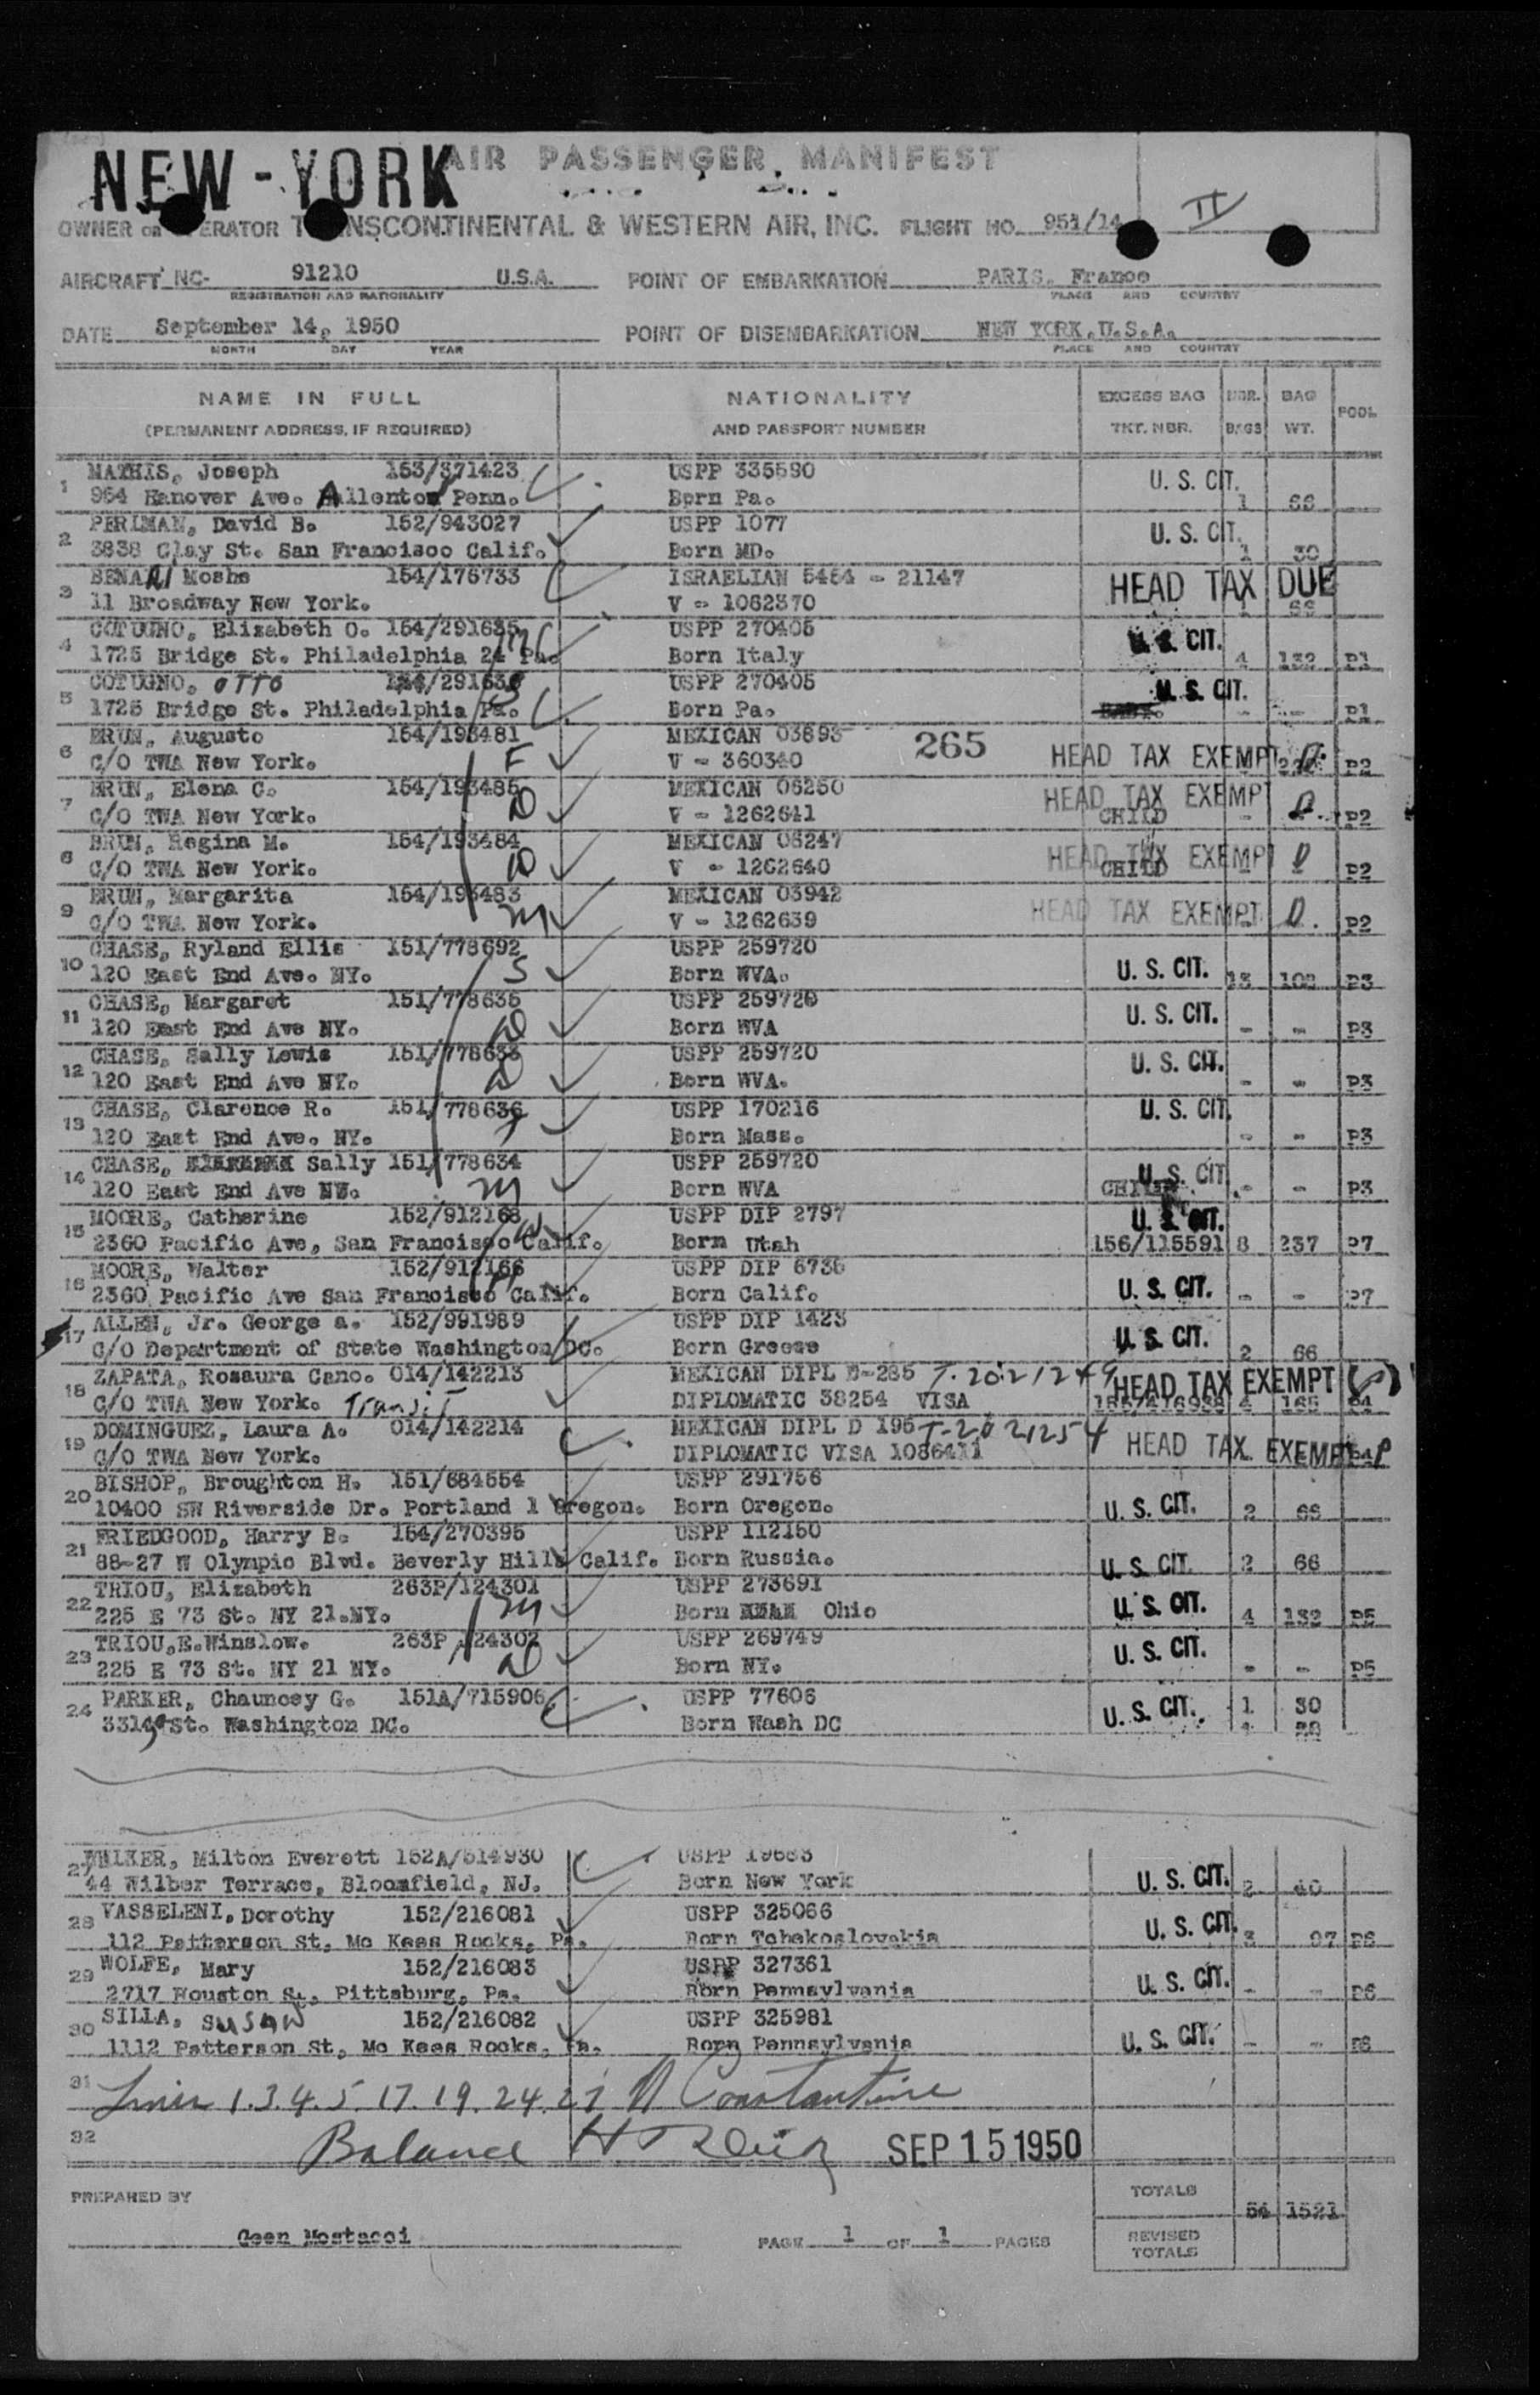 NEW-YORK AIR PASSENGER MANIFEST
II
OWNER OR OPERATOR TRANSCONTINENTAL & WESTERN AIR, INC. FLIGHT NO. 951/14
AIRCRAFT NC- 91210 U.S.A. POINT OF EMBARKATION PARIS, France
REGISTRATION AND NATIONALITY PLACE AND COUNTRY
DATE September 14, 1950 POINT OF DISEMBARKATION NEW YORK, U.S.A.
MONTH DAY YEAR PLACE AND COUNTRY
NAME IN FULL NATIONALITY EXCESS BAG NBR. BAG POOL
(PERMANENT ADDRESS, IF REQUIRED) AND PASSPORT NUMBER TKT. NBR. BAGS WT.
1 MATHIS, Joseph 153/371423 USPP 335590 U. S. CIT.
964 Hanover Ave. Allentow Penn. Born Pa. 1 66
2 PERLMAN, David B. 152/943027 USPP 1077 U. S. CIT.
3838 Clay St. San Francisco Calif. Born MD. 1 30
3 BENARI Moshe 154/176733 ISRAELIAN 5454 - 21147 HEAD TAX DUE
11 Broadway New York. V - 1062370 1 66
4 COTUGNO, Elizabeth O. 154/291635 USPP 270405 U. S. CIT.
1725 Bridge St. Philadelphia 24 Pa. Born Italy 4 132 P1
5 COTUGNO, OTTO 154/291636 USPP 270405 U. S. CIT.
1725 Bridge St. Philadelphia Pa. Born Pa. - - P1
6 BRUN, Augusto 154/193481 MEXICAN 03693 265 HEAD TAX EXEMPT
C/O TWA New York. F V - 360340 P2
7 BRUN, Elena C. 154/193485 MEXICAN 06250 HEAD TAX EXEMPT
C/O TWA New York. D V - 1262641 CHILD - - P2
8 BRUN, Regina M. 154/193484 MEXICAN 06247 HEAD TAX EXEMPT
C/O TWA New York. D V - 1262640 CHILD - - P2
9 BRUN, Margarita 154/193483 MEXICAN 03942 HEAD TAX EXEMPT
C/O TWA New York. M V - 1262639 P2
10 CHASE, Ryland Ellis 151/778692 USPP 259720
120 East End Ave. NY. S Born WVA. U. S. CIT. 13 102 P3
11 CHASE, Margaret 151/778635 USPP 259720 U. S. CIT.
120 East End Ave NY. D Born WVA - - P3
12 CHASE, Sally Lewis 151/778633 USPP 259720 U. S. CIT.
120 East End Ave NY. D Born WVA. - - P3
13 CHASE, Clarence R. 151/778636 USPP 170216 U. S. CIT.
120 East End Ave. NY. Born Mass. - - P3
14 CHASE, Sally 151/778634 USPP 259720 U. S. CIT.
120 East End Ave NY. M Born WVA CHILD - - P3
15 MOORE, Catherine 152/912168 USPP DIP 2797 U. S. CIT.
2360 Pacific Ave, San Francisco Calif. Born Utah 156/115591 8 237 P7
16 MOORE, Walter 152/912166 USPP DIP 6735
2360 Pacific Ave San Francisco Calif. Born Calif. U. S. CIT. - - P7
17 ALLEN, Jr. George a. 152/991989 USPP DIP 1423
C/O Department of State Washington DC. Born Greece U. S. CIT. 2 66
18 ZAPATA, Rosaura Cano. 014/142213 MEXICAN DIPL E-285 T-2021249 HEAD TAX EXEMPT
C/O TWA New York. Transit DIPLOMATIC 38254 VISA 4 165 P4
19 DOMINGUEZ, Laura A. 014/142214 MEXICAN DIPL D 196 T-2021254 HEAD TAX EXEMPT
C/O TWA New York. DIPLOMATIC VISA 1086411 P4
20 BISHOP, Broughton H. 151/684554 USPP 291756
10400 SW Riverside Dr. Portland 1 Oregon. Born Oregon. U. S. CIT. 2 66
21 FRIEDGOOD, Harry B. 154/270395 USPP 112150
88-27 W Olympic Blvd. Beverly Hills Calif. Born Russia. U. S. CIT. 2 66
22 TRIOU, Elizabeth 263P/124301 USPP 273691
225 E 73 St. NY 21.NY. M Born Ohio U. S. CIT. 4 132 P5
23 TRIOU,E.Winslow. 263P/124302 USPP 269749 U. S. CIT.
225 E 73 St. NY 21 NY. D Born NY. - - P5
24 PARKER, Chauncey G. 151A/715906 USPP 77606 1 30
St. Washington DC. Born Wash DC U. S. CIT.
27 WALKER, Milton Everett 152A/514930 USPP 19663
44 Wilber Terrace, Bloomfield, NJ. Born New York U. S. CIT. 2 40
28 VASSELENI, Dorothy 152/216081 USPP 325066
112 Patterson St, Mc Kees Rocks, Pa. Born Tchekoslovakia U. S. CIT. 3 97 P6
29 WOLFE, Mary 152/216083 USPP 327361
2717 Houston St., Pittsburg, Pa. Born Pennsylvania U. S. CIT. - - P6
30 SILLA, SUSAN 152/216082 USPP 325981
1112 Patterson St, Mc Kees Rocks, Pa. Born Pennsylvania U. S. CIT. - - P6
31 Lines 1.3.4.5.17.19.24.27 A Constantine
32 Balance SEP 15 1950
PREPARED BY TOTALS 54 1521
Geen Mostacci PAGE 1 OF 1 PAGES REVISED TOTALS